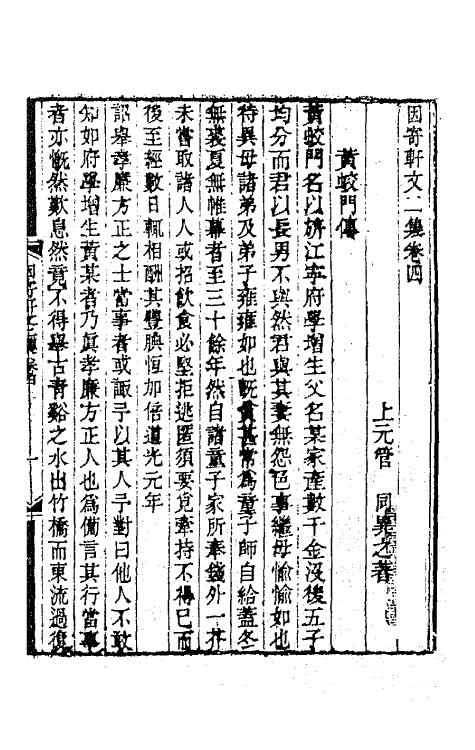 因寄軒文二集卷四
上元管　同異之著
黃蛟門傳
黃蛟門名以旂江寧府學增生父名某家產數千金沒後五子
均分而君以長男不與然君與其妻無怨色事繼母愉愉如也
待異母諸弟及弟子雍雍如也旣貧甚常爲童子師自給蓋冬
無裘夏無帷幕者至三十餘年然自諸童子家所奉錢外一芥
未嘗取諸人人或招飲食必堅拒逃匿須要覓牽持不得已而
後至經數日輒相酬其豐腆恆加倍道光元年
詔舉孝廉方正之士當事者或諏予以其人予對曰他人不敢
知如府學增生黃某者乃眞孝廉方正人也爲備言其行當事
者亦慨然歎息然竟不得舉古靑谿之水出竹橋而東流過復